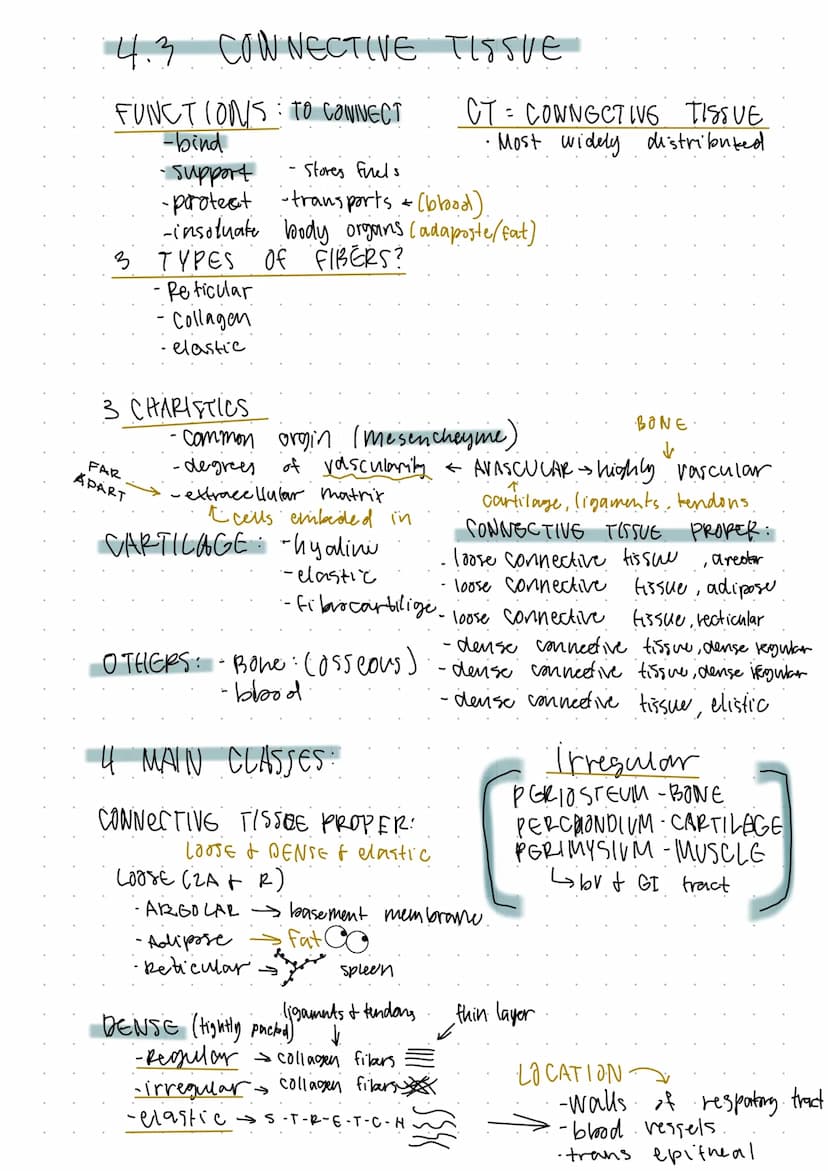 4.3 CONNECTIVE TISSUE
FUNCTIONS: TO CONNECT
-bind
-support - stores fuels
-protect -transports ← (blood)
-insoluate body organs (adaposte/fat)
CT = CONNECTIVE TISSUE
· Most widely distributed
3 TYPES OF FIBERS?
- Reticular
- Collagen
- elastic
3 CHARISTICS
- common orgin (mesencheyme)
- degrees of vascularity ← AVASCULAR → highly vascular
BONE
cartilage, ligaments, tendons
FAR APART → - extracellular matrix
cells embeded in
CARTILAGE: -hyaline
-elastic
-fibrocartilige
CONNECTIVE TISSUE PROPER:
- loose connective tissue, areolar
- loose connective tissue, adipose
- loose connective tissue, recticular
- dense connective tissue, dense regular
- dense connective tissue, dense irregular
- dense connective tissue, elistic
OTHERS: - Bone: (osseous)
- blood
4 MAIN CLASSES:
CONNECTIVE TISSUE PROPER:
LOOSE + DENSE + elastic
LOOSE (2A + R)
- AREOLAR → basement membrane
- Adipose → fat
- Reticular → spleen
irregular
PERIOSTEUM - BONE
PERCHONDIUM - CARTILAGE
PERIMYSIUM - MUSCLE
↳ bv + GI tract
DENSE (tightly packed)
ligaments + tendons
thin layer
-Regular → collagen fibers
-irregular → collagen fibers
-elastic → S-T-R-E-T-C-H
LOCATION
-walls of respatory tract
-blood vessels
-trans epitheal